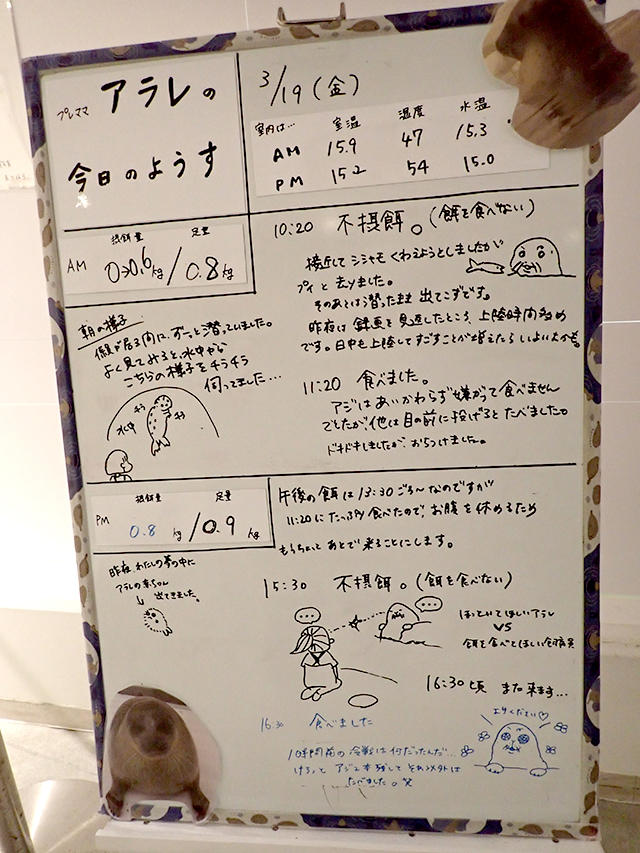 プレママ アラレの
今日のようす
3/19(金)
室内は… 室温 湿度 水温
AM 15.9 47 15.3
PM 15.2 54 15.0
AM
摂餌量 定量
0→0.6kg/0.8kg
10:20 不摂餌。(餌を食べない)
接近して シシャモ くわえようとしましたが
プイと去りました。
そのあとは潜ったまま 出てこずです。
昨夜は録画を見返したところ、上陸時間多め
です。日中も上陸してすごすことが増えたら いよいよかも。
朝の様子
係員が居る間に、ずーっと潜っていました。
よく見てみると、水中から
こちらの様子をチラチラ
伺ってました…
チラ
チラ
水中
11:20 食べました。
アジはあいかわらず嫌がって食べません
でしたが、他は目の前に投げるとたべました。
ドキドキしましたが、おちつけました。
PM
摂餌量 定量
0.8kg/0.9kg
午後の餌は13:30ごろ〜なのですが
11:20にたっぷり食べたので、お腹を休めるため
もうちょっとあとで来ることにします。
昨夜、わたしの夢の中に
アラレの赤ちゃん
出てきました。
15:30 不摂餌。(餌を食べない)
ほっといてほしいアラレ
VS
餌を食べてほしい飼育員
16:30頃 また来ます…
16:30 食べました
1時間前の冷戦は何だったんだ…
けろっと アジ2本残して それ以外は
たべました。笑
エサください♡